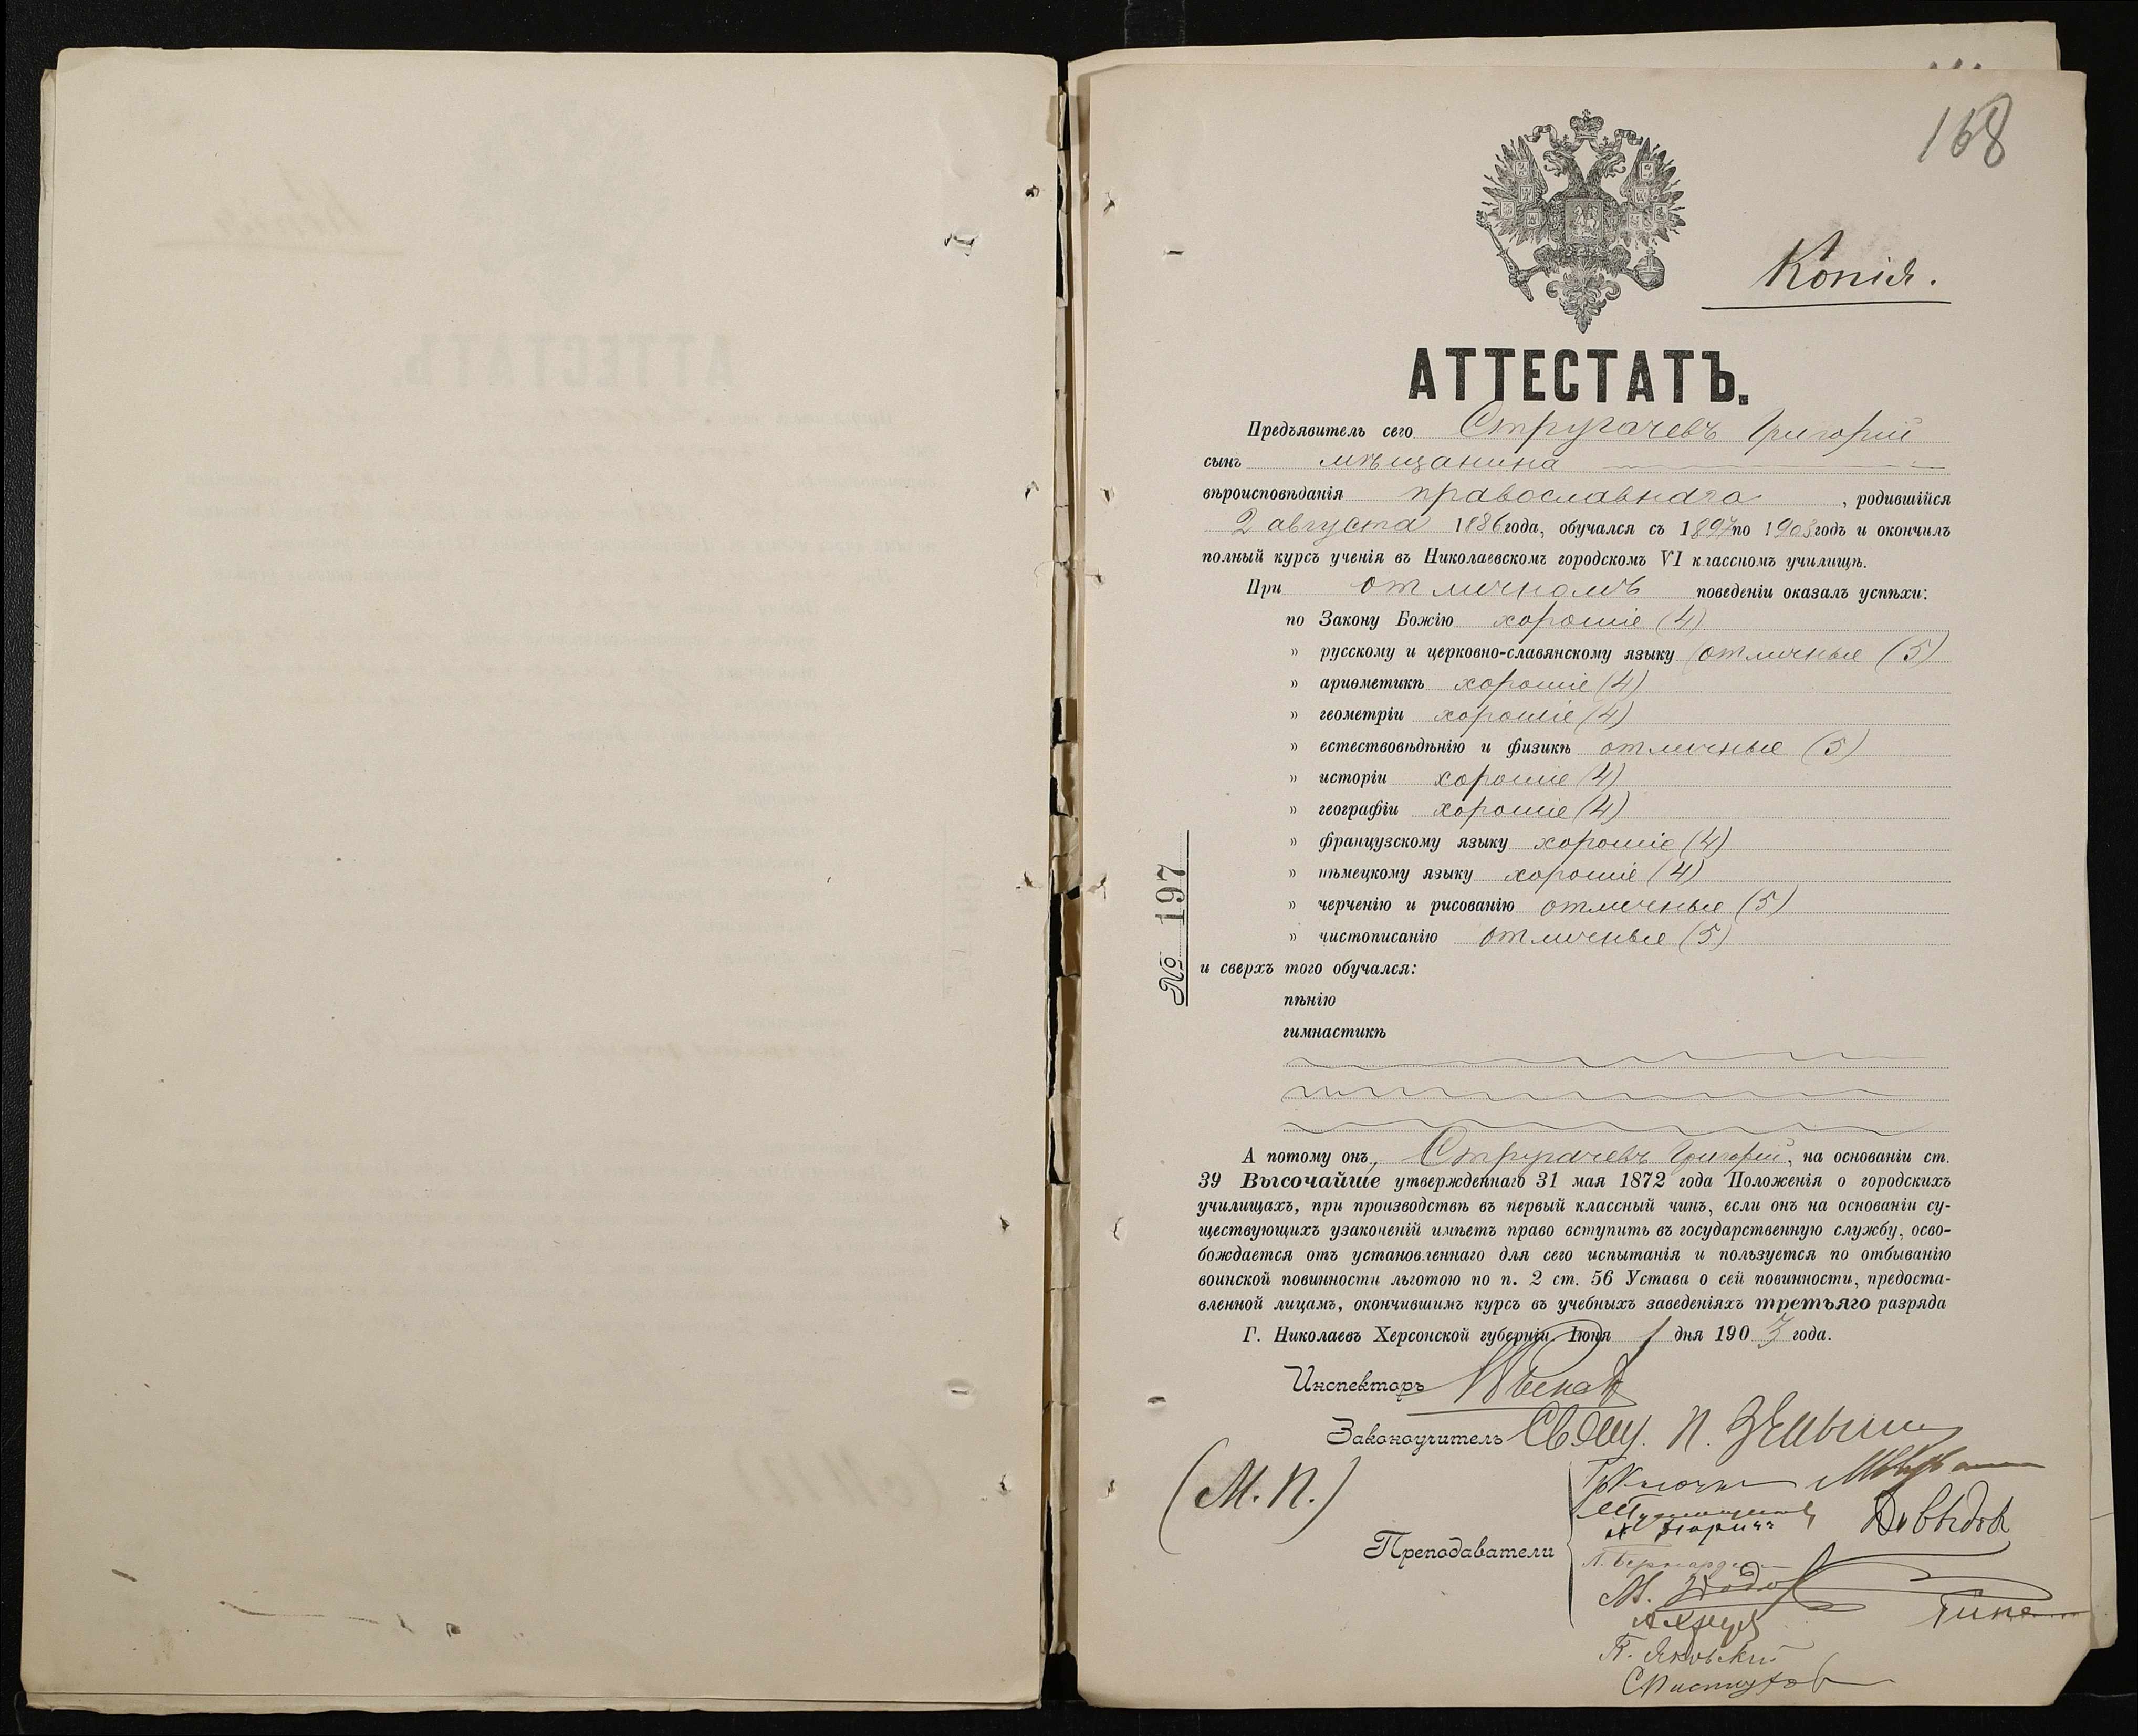 168
Копія.
АТТЕСТАТЪ.
Предъявитель сего Стругачевъ Григорій
сынъ мѣщанина
вѣроисповѣданія православнаго, родившійся
2 августа 1886 года, обучался съ 1897 по 1903 годъ и окончилъ
полный курсъ ученія въ Николаевскомъ городскомъ VI классномъ училищѣ.
При отличномъ поведеніи оказалъ успѣхи:
по Закону Божію хорошіе (4)
" русскому и церковно-славянскому языку отличные (5)
" ариѳметикѣ хорошіе (4)
" геометріи хорошіе (4)
" естествовѣдѣнію и физикѣ отличные (5)
" исторіи хорошіе (4)
" географіи хорошіе (4)
" французскому языку хорошіе (4)
" нѣмецкому языку хорошіе (4)
" черченію и рисованію отличные (5)
" чистописанію отличные (5)
и сверхъ того обучался:
пѣнію
гимнастикѣ
№ 197
А потому онъ, Стругачевъ Григорій, на основаніи ст.
39 Высочайше утвержденнаго 31 мая 1872 года Положенія о городскихъ
училищахъ, при производствѣ въ первый классный чинъ, если онъ на основаніи су-
ществующихъ узаконеній имѣетъ право вступить въ государственную службу, осво-
бождается отъ установленнаго для сего испытанія и пользуется по отбыванію
воинской повинности льготою по п. 2 ст. 56 Устава о сей повинности, предоста-
вленной лицамъ, окончившимъ курсъ въ учебныхъ заведеніяхъ третьяго разряда
Г. Николаевъ Херсонской губерніи. Іюня 1 дня 1903 года.
Инспекторъ
Законоучитель Свящ. П.
(М.П.)
Преподаватели